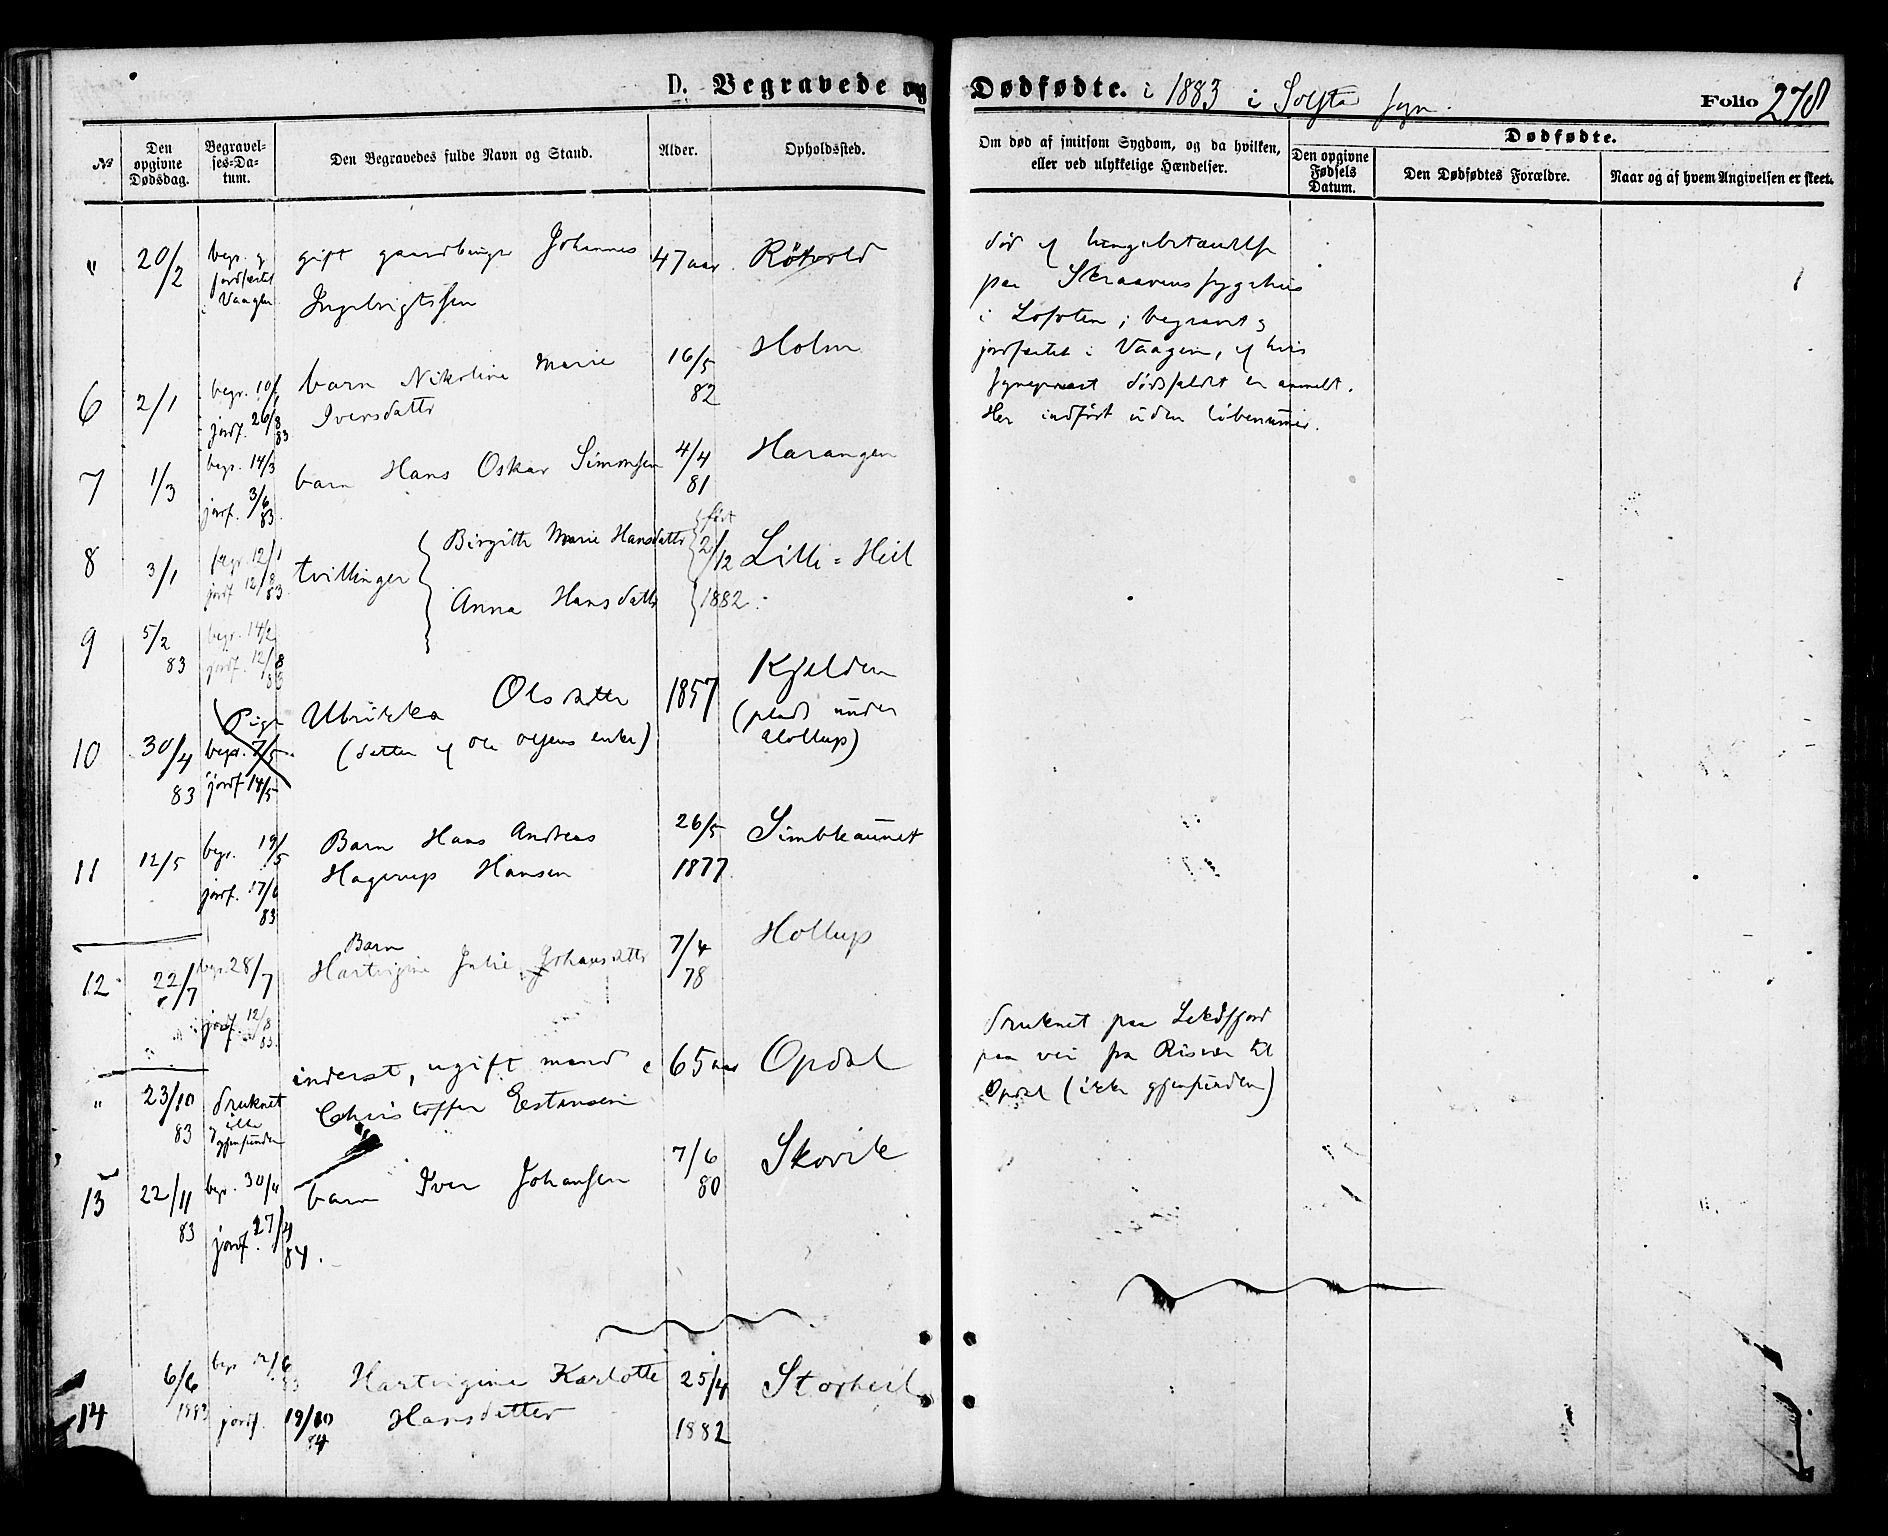 D. Begravede og Dødfødte. i 1883 i Solstad sogn.
Folio 278
No
Den opgivne Dødsdag.
Begravel-ses-Da-tum.
Den Begravedes fulde Navn og Stand.
Alder.
Opholdssted.
Om død af smitsom Sygdom, og da hvilken,
eller ved ulykkelige Hændelser.
Dødfødte.
Den opgivne Fødsels Datum.
Den Dødfødtes Forældre.
Naar og af hvem Angivelsen er skeet.
" 20/2 begr. og jordfæstet i Vaagen gift Johannes 47 aar
Ingebrigtssen
død af
paa
i Lofoten; begravet og
jordfæstet i Vaagen, af hvis
sognepræst dødsfaldet er anmeldt.
Her indført uden løbenummer.
6 2/1 begr. 10/1 barn Nikoline Marie 16/5 82 Holm
jordf. 26/8 83 Iversdattr
7 1/3 begr. 14/3 barn Hans Oskar Simonsen 4/4 81 Harangen
jordf. 3/6 83.
8 3/1 begr. 12/1 tvillinger Birgitte Marie Hansdattr født 2/12 1882. Lille-Heil
jordf. 12/8 83
Anna Hansdattr
9 5/2 83 begr. 14/2
jordf. 12/8 83
10 30/4 83 Pige Ulrikka Olsdatter 1857 Kjelden
begr. 7/5 (datter af Ole Olsens enke) (plads under Hollup)
jordf 14/5
11 12/5 begr. 19/5 Barn Hans Andreas 26/5 1877
jordf. 17/6 83 Hagerup Hansen
12 22/7 begr. 28/7 Barn
Hartvigine Julie Johansdattr 7/4 78 Hollup
jordf. 12/8 83.
" 23/10 83 druknet og ikke gjenfunden inderst, ugift mand 65 aar Opdal
Christoffer Estensen
druknet paa
paa vei fra Risvær til
Opdal (ikke gjenfunden)
13 22/11 83 begr. 30/11 barn Iver Johansen 7/6 80 Skovik
jordf. 27/4 84.
14 6/6 1883 begr 12/6 83 Hartvigine Karlotte 25/4 1882 Storheil
jordf. 19/10 84 Hansdatter